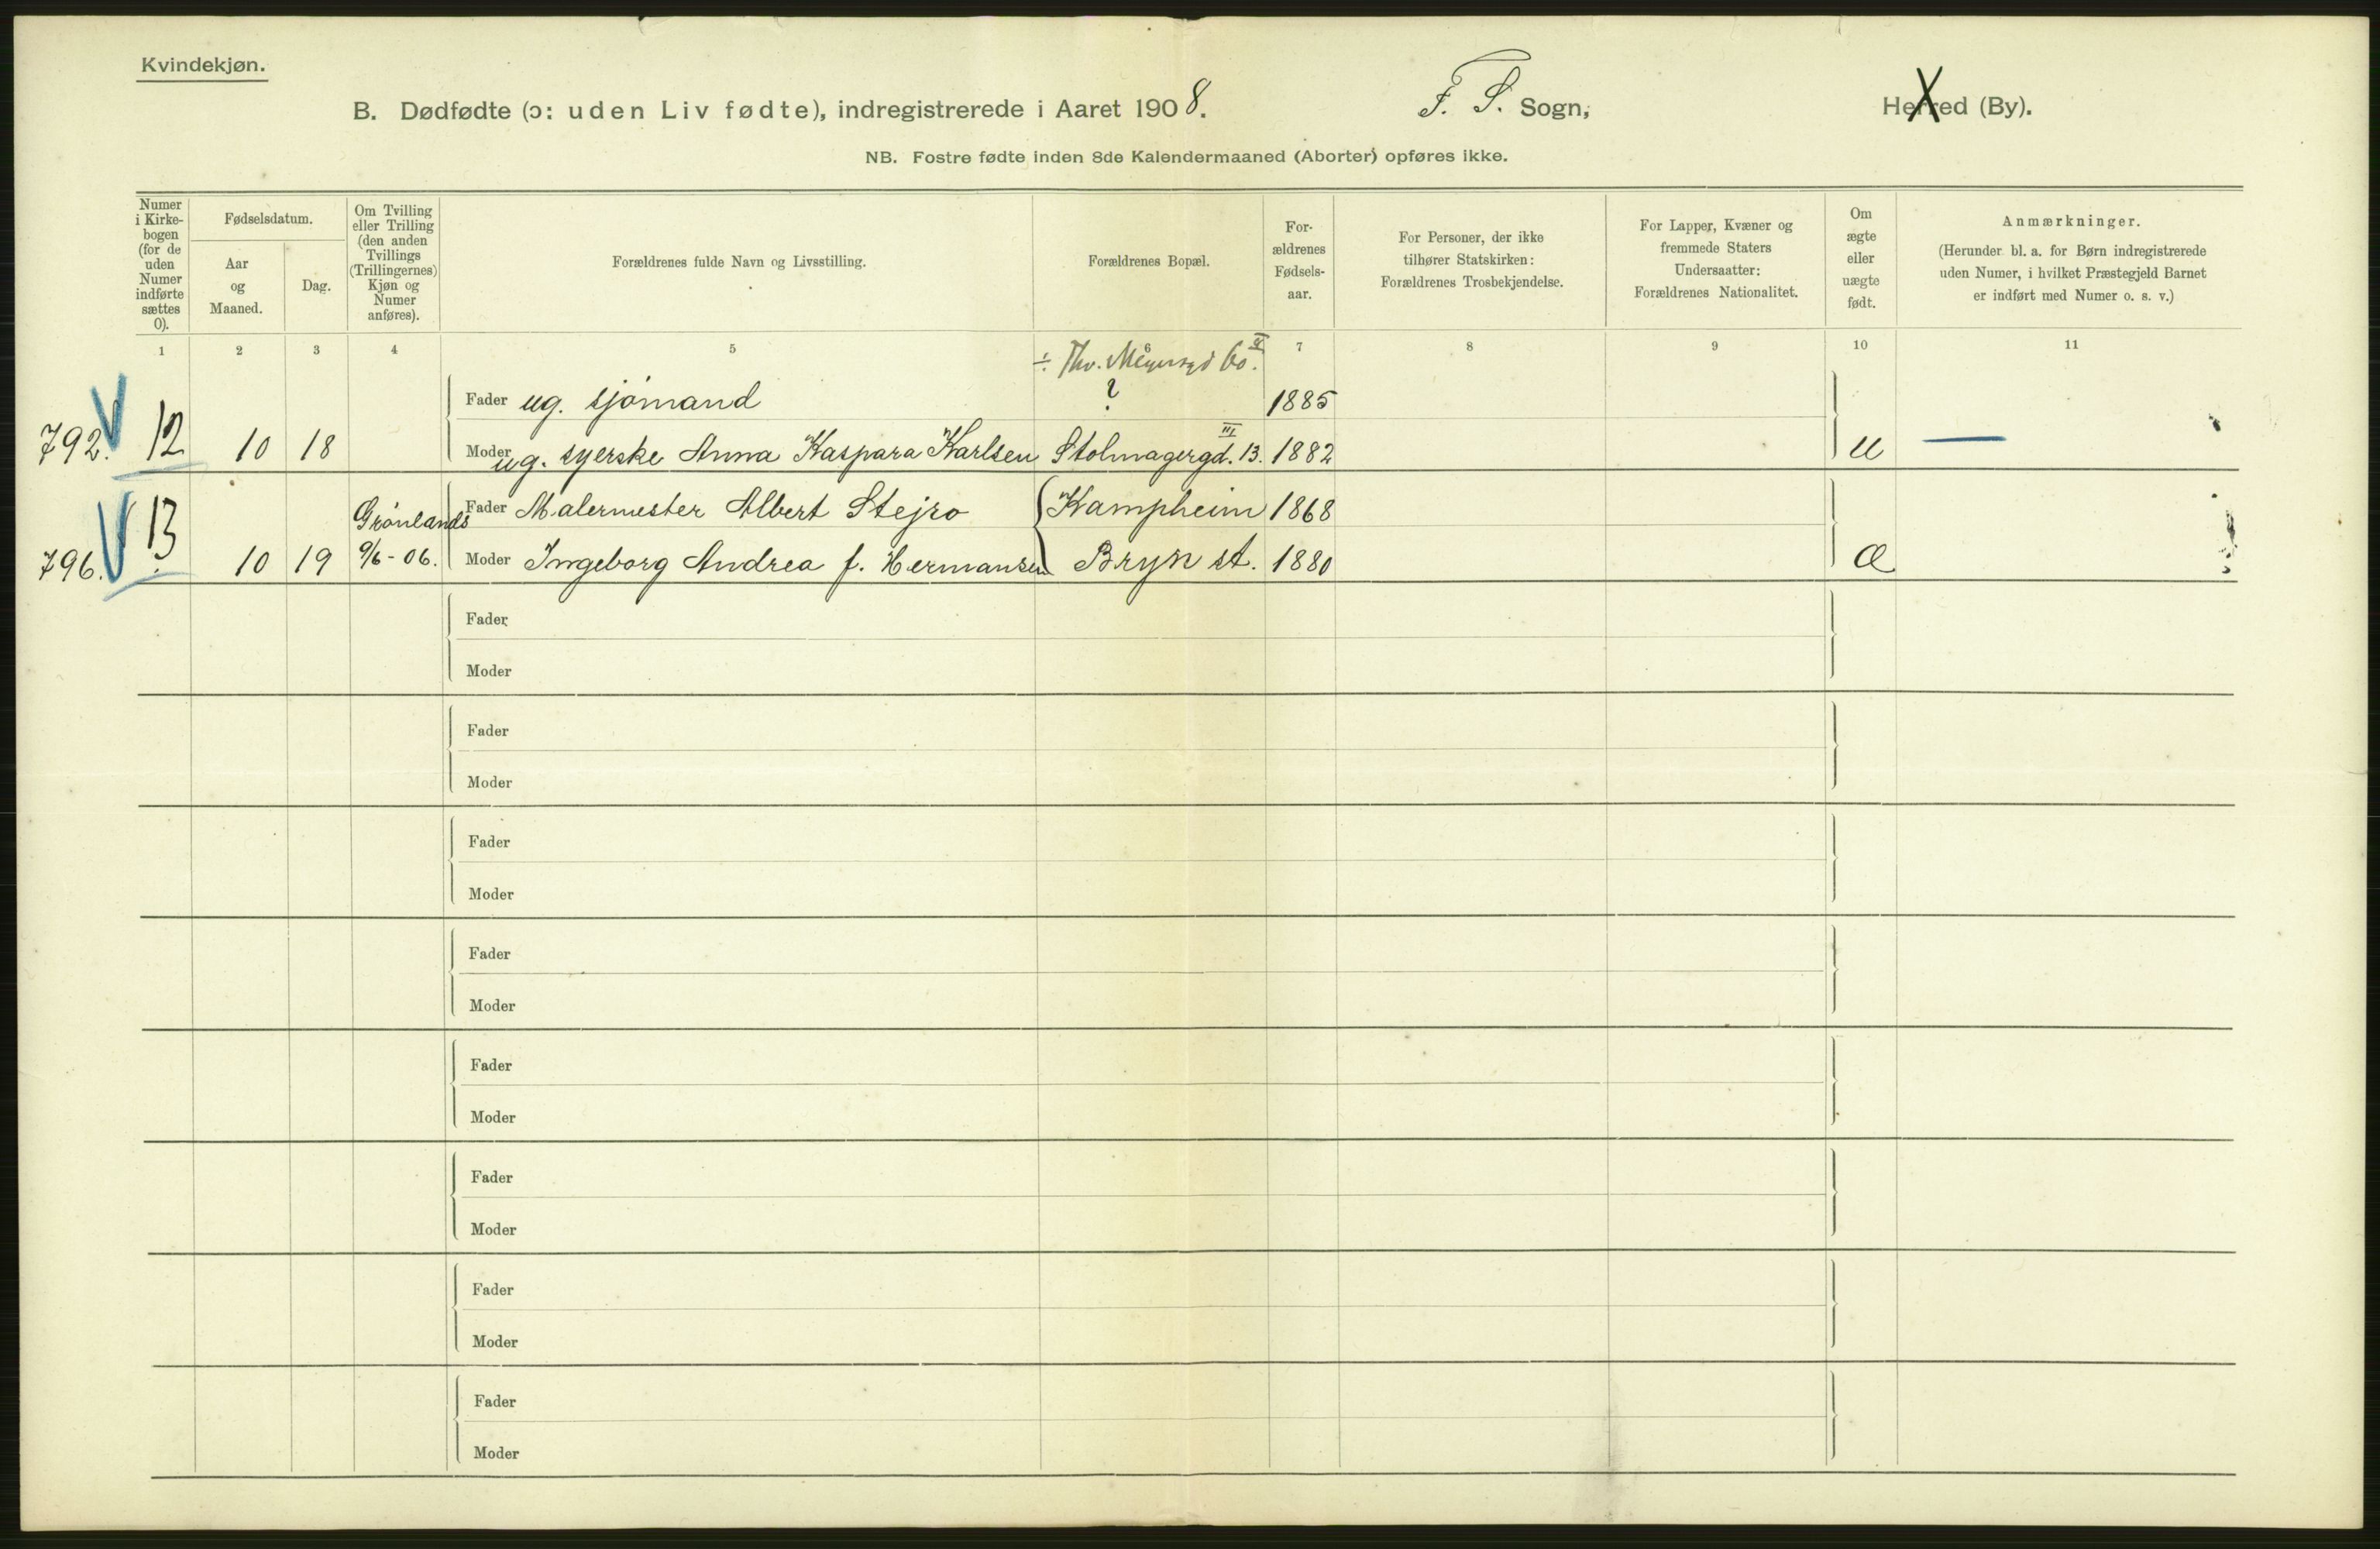 Kvindekjøn.
B. Dødfødte (ɔ: uden Liv fødte), indregistrerede i Aaret 1908. F. S. Sogn, Herred (By).
NB. Fostre fødte inden 8de Kalendermaaned (Aborter) opføres ikke.
Numer
i Kirke-
bogen
(for de
uden
Numer
indførte
sættes
0).
Fødselsdatum.
Aar
og
Maaned.
Dag.
Om Tvilling
eller Trilling
(den anden
Tvillings
(Trillingernes)
Kjøn og
Numer
anføres).
Forældrenes fulde Navn og Livsstilling.
Forældrenes Bopæl.
For-
ældrenes
Fødsels-
aar.
For Personer, der ikke
tilhører Statskirken:
Forældrenes Trosbekjendelse.
For Lapper, Kvæner og
fremmede Staters
Undersaatter:
Forældrenes Nationalitet.
Om
ægte
eller
uægte
født.
Anmærkninger.
(Herunder bl. a. for Børn indregistrerede
uden Numer, i hvilket Præstegjeld Barnet
er indført med Numer o. s. v.)
1 2 3 4 5 6 7 8 9 10 11
÷ Thv. Meyersgd 60. II
Fader ug. sjømand ? 1885
792. 12 10 18 Moder ug. syerske Anna Kaspara Karlsen Stolmagergd. 13. III 1882 U —
13 Grönlands Fader Malermester Albert Stejro Kampheim 1868
796. 10 19 9/6 - 06. Moder Ingeborg Andrea f. Hermansen Bryn st. 1880 Æ
Fader
Moder
Fader
Moder
Fader
Moder
Fader
Moder
Fader
Moder
Fader
Moder
Fader
Moder
Fader
Moder